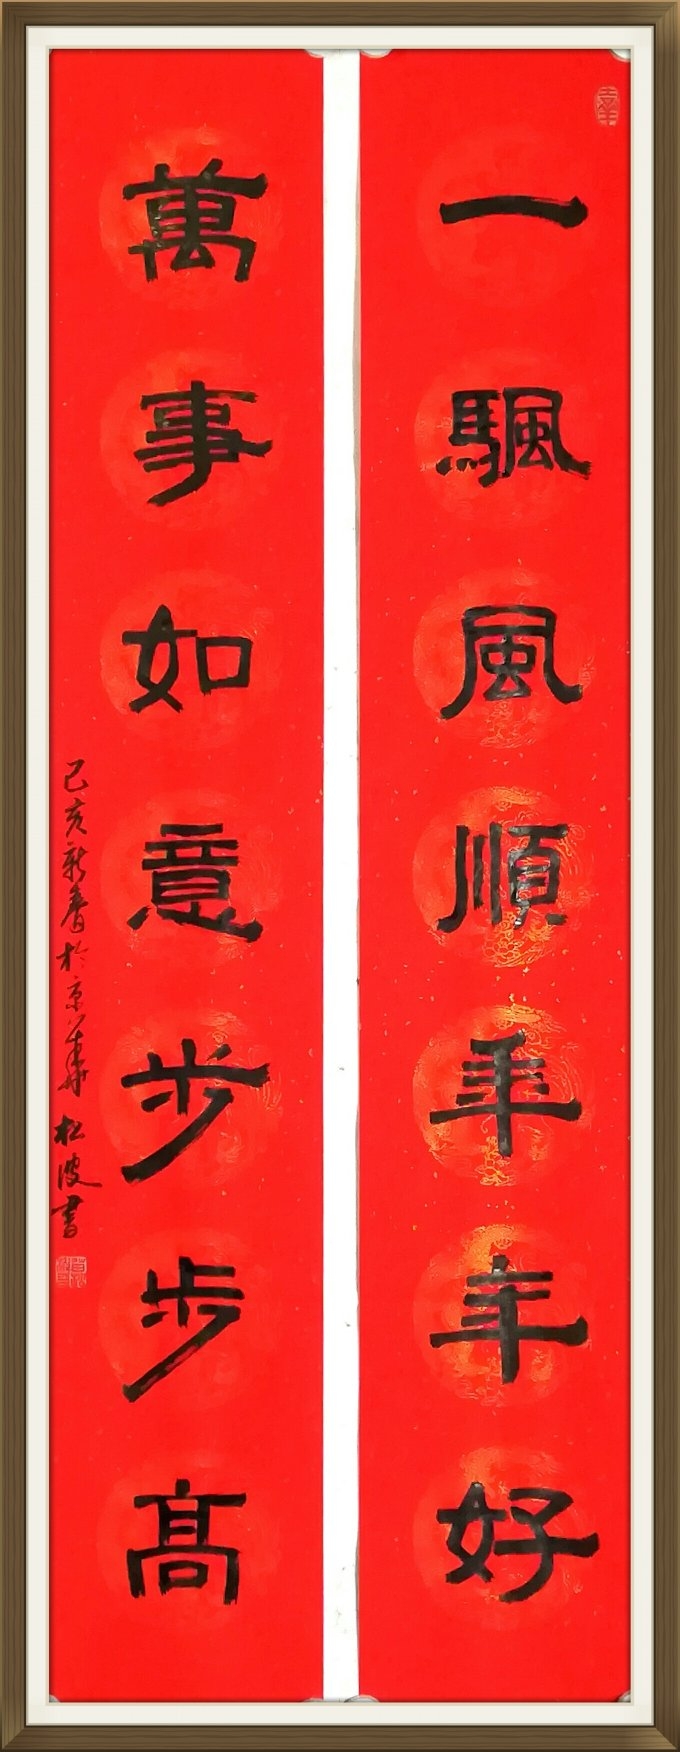 一颿風順年年好
萬事如意步步高
己亥新春於京華松波書